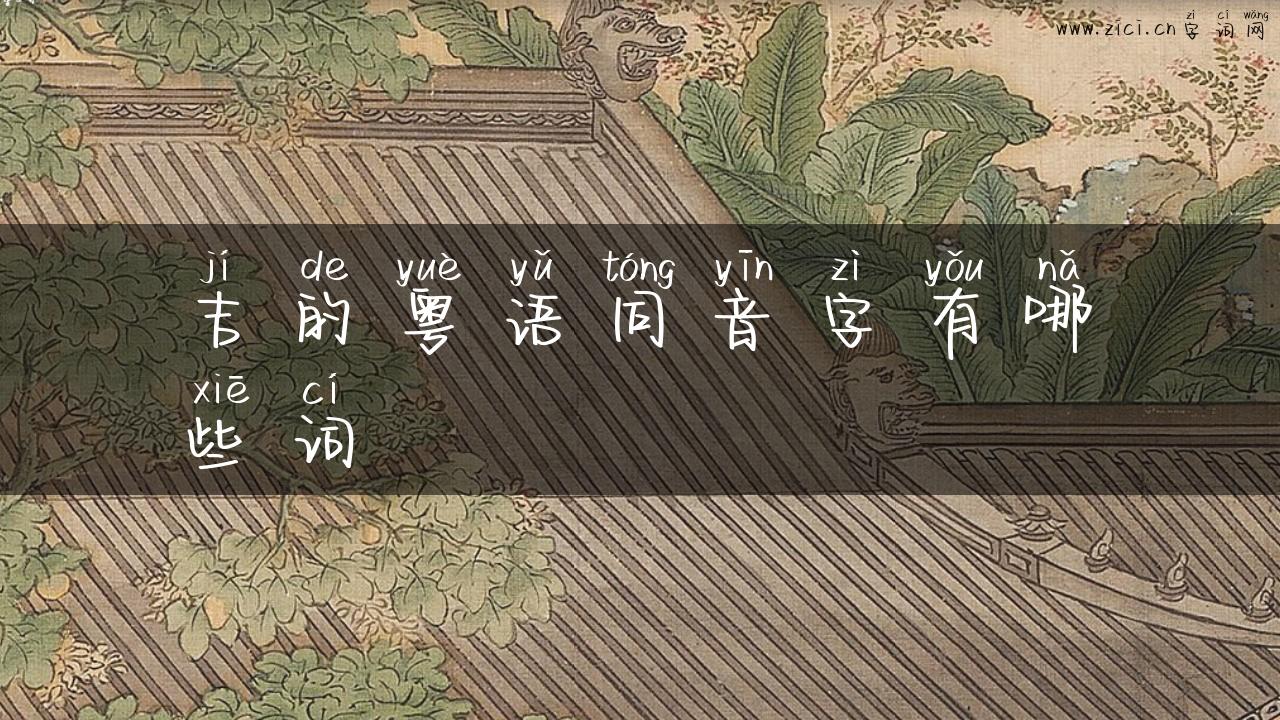 zì cí wǎng
www.zici.cn 字词网
jí de yuè yǔ tóng yīn zì yǒu nǎ
吉的粤语同音字有哪
xiē cí
些词